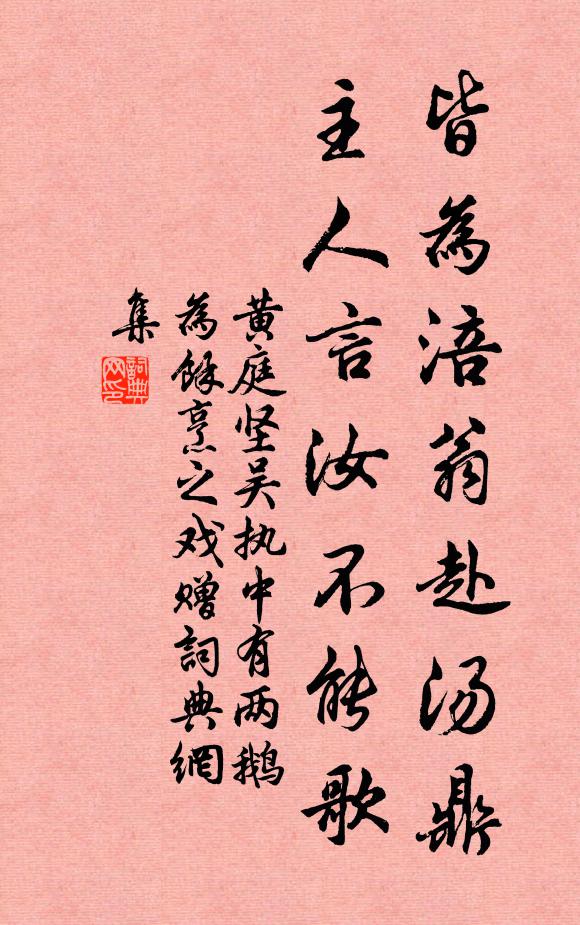 皆為涪翁赴汤鼎
主人言汝不能歌
黄庭坚吴执中有两鹅
為餘烹之戏赠詞典網
集
詞典
网印